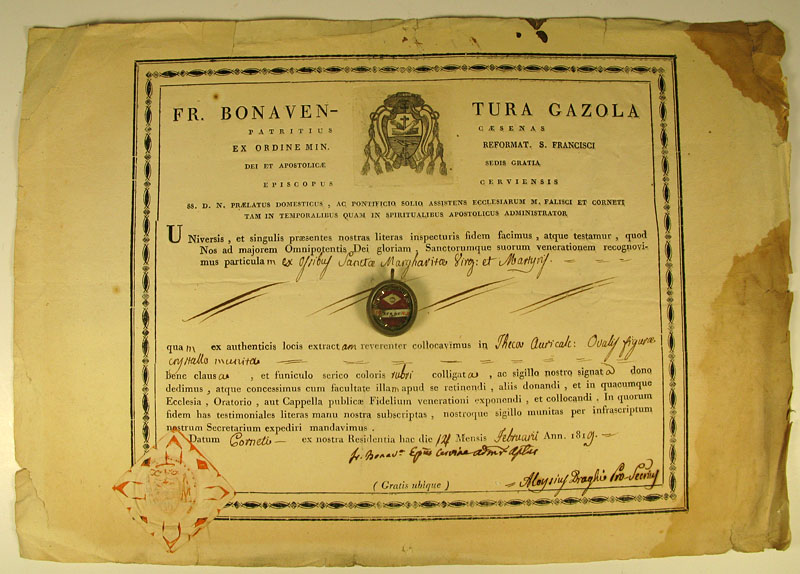 FR. BONAVEN- TURA GAZOLA
PATRITIUS CÆSENAS
EX ORDINE MIN. REFORMAT. S. FRANCISCI
DEI ET APOSTOLICÆ SEDIS GRATIA
EPISCOPUS CERVIENSIS
SS. D. N. PRÆLATUS DOMESTICUS , AC PONTIFICIO SOLIO ASSISTENS ECCLESIARUM M. FALISCI ET CORNETI
TAM IN TEMPORALIBUS QUAM IN SPIRITUALIBUS APOSTOLICUS ADMINISTRATOR
UNiversis , et singulis præsentes nostras literas inspecturis fidem facimus , atque testamur , quod
Nos ad majorem Omnipotentis Dei gloriam , Sanctorumque suorum venerationem recognovi-
mus particulam ex Ossibus Sanctæ Margharitæ Virg: et Martyris.
quam ex authenticis locis extractam reverenter collocavimus in Theca Auricalc: Ovalis figuræ
crystallo munita
Bene clausa , et funiculo serico coloris rubri colligata , ac sigillo nostro signata dono
dedimus , atque concessimus cum facultate illam apud se retinendi , aliis donandi , et in quacumque
Ecclesia , Oratorio , aut Cappella publicæ Fidelium venerationi exponendi , et collocandi . In quorum
fidem has testimoniales literas manu nostra subscriptas , nostroque sigillo munitas per infrascriptum
nostrum Secretarium expediri mandavimus .
Datum Corneti ex nostra Residentia hac die 14 Mensis Februarii Ann. 1819.
fr. Bonavᵃ Epus Cerviæ admʳ aplus
( Gratis ubique ) Aloysius Draghis Pro-Secrius